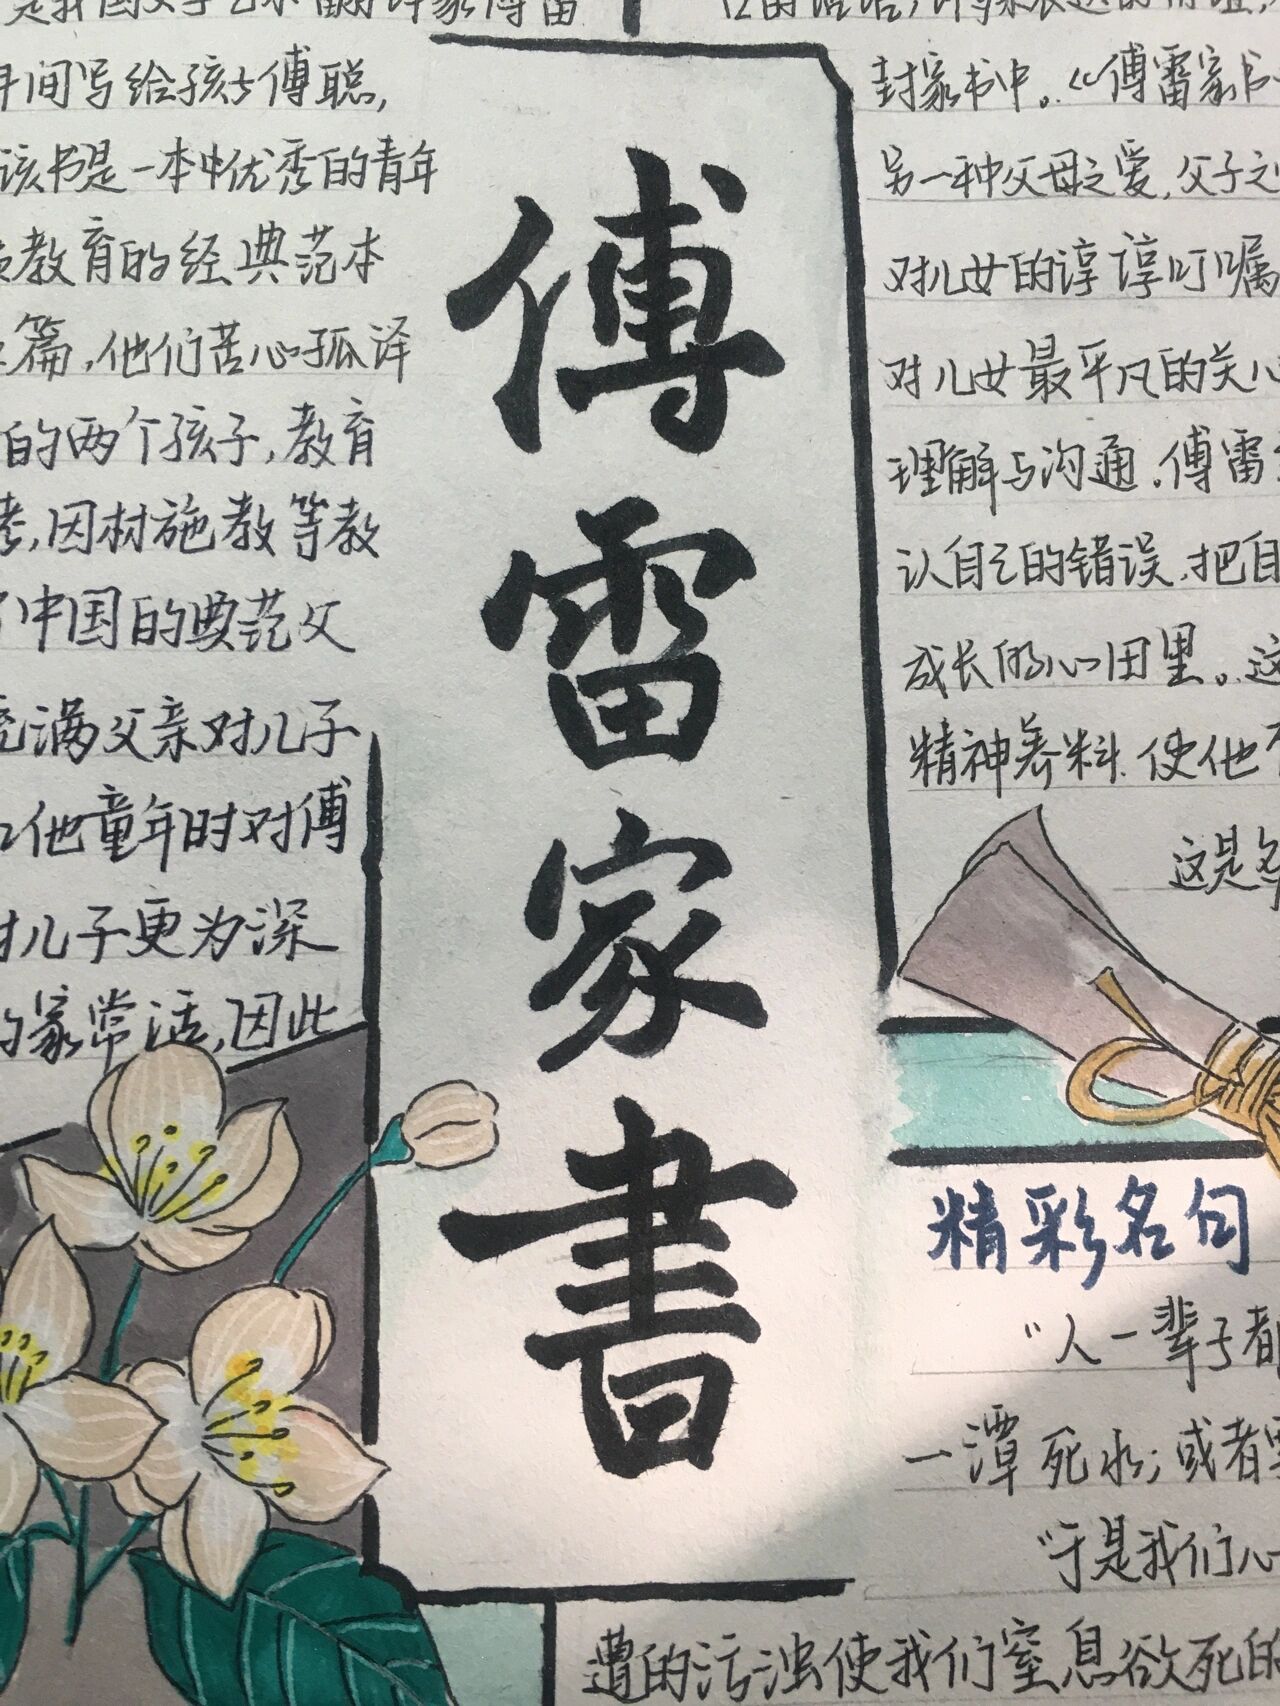 是我国文学艺术翻译家傅雷
年间写给孩子傅聪,
该书是一本中优秀的青年
教育的经典范本
篇,他们苦心孤译
的两个孩子,教育
考,因材施教等教
中国的典范父
充满父亲对儿子
他童年时对傅
对儿子更为深
的家常话,因此
傅雷家書
封家书中。《傅雷家书
另一种父母之爱,父子之
对儿女的谆谆叮嘱
对儿女最平凡的关心
理解与沟通.傅雷
认自己的错误,把自
成长的心田里。这
精神养料.使他
这是
精彩名句
“人一辈子都
一潭死水;或者
“于是我们心
遭的污浊使我们窒息欲死的